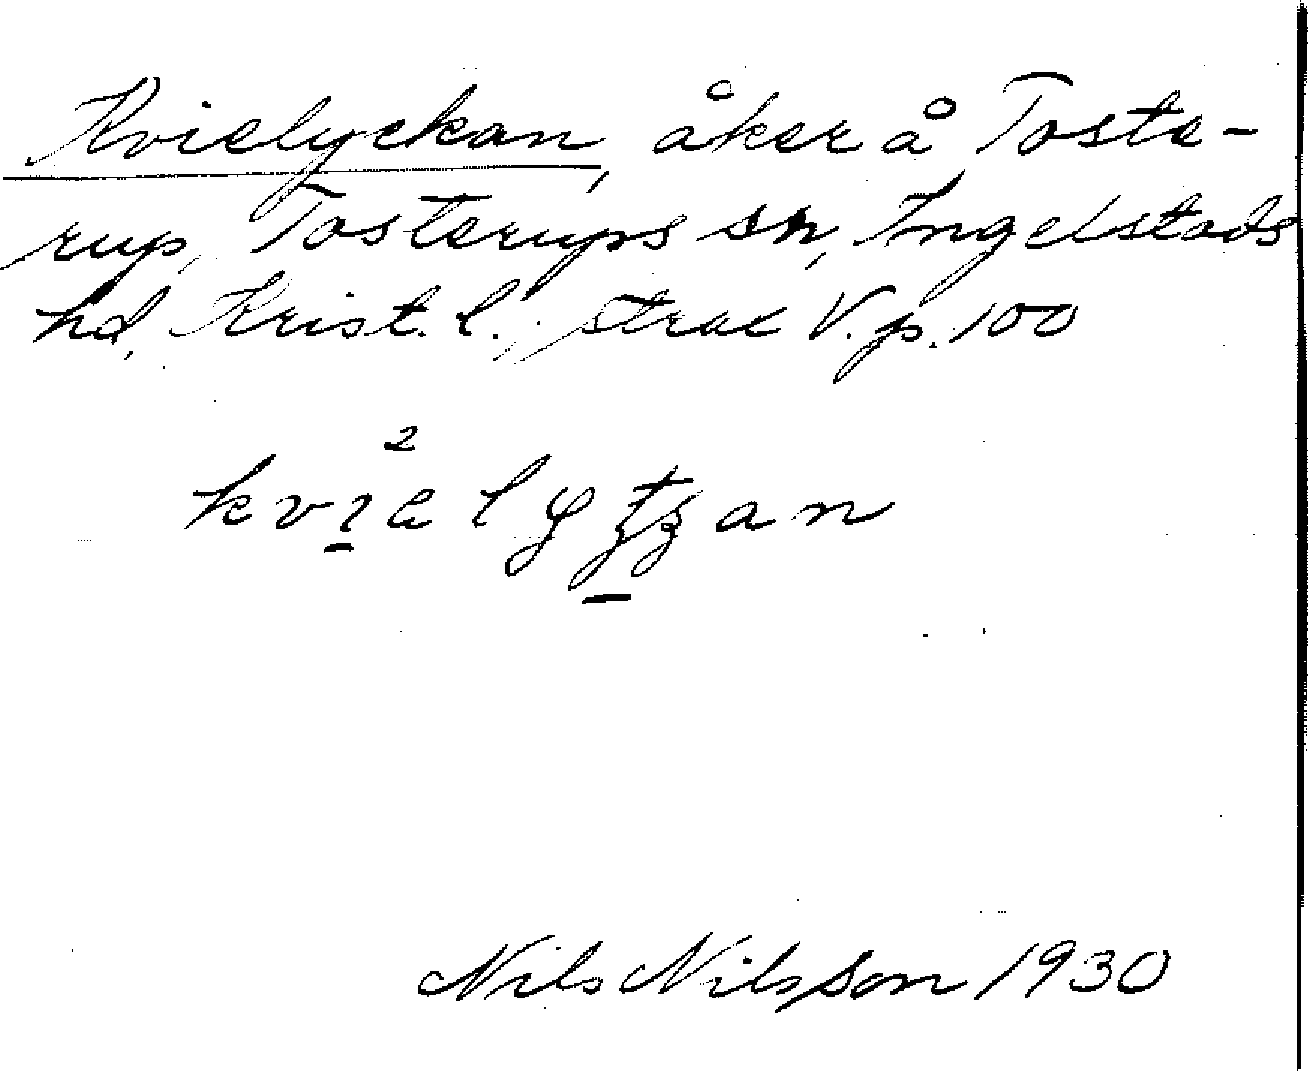 Kvielyckan, åker å Toste-
rup, Tosterups sn, Ingelstads
hd, Krist. l., strax V. p. 100
Nils Nilsson 1930